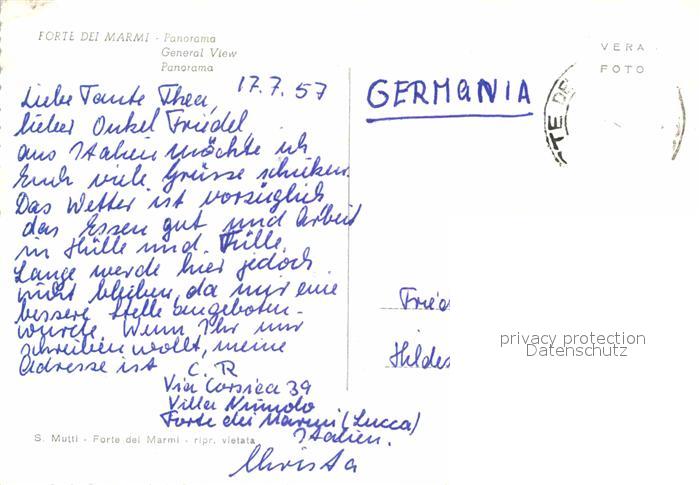 FORTE DEI MARMI - Panorama
General View
Panorama
VERA
FOTO
17.7.57
GERMANIA
TE DE
Liebe Tante Thea,
lieber Onkel Friedel,
aus Italien möchte ich
Euch viele Grüsse schicken.
Das Wetter ist vorzüglich
das Essen gut und Arbeit
in Hülle und Fülle.
Lange werde hier jedoch
nicht bleiben, da mir eine
bessere Stelle angeboten-
wurde. Wenn Ihr mir
schreiben wollt, meine
Adresse ist C. R
Via Corsica 39
Villa
Forte dei Marmi (Lucca)
Italien.
Christa
Fried
Hildes
privacy protection
Datenschutz
S. Mutti - Forte dei Marmi - ripr. vietata